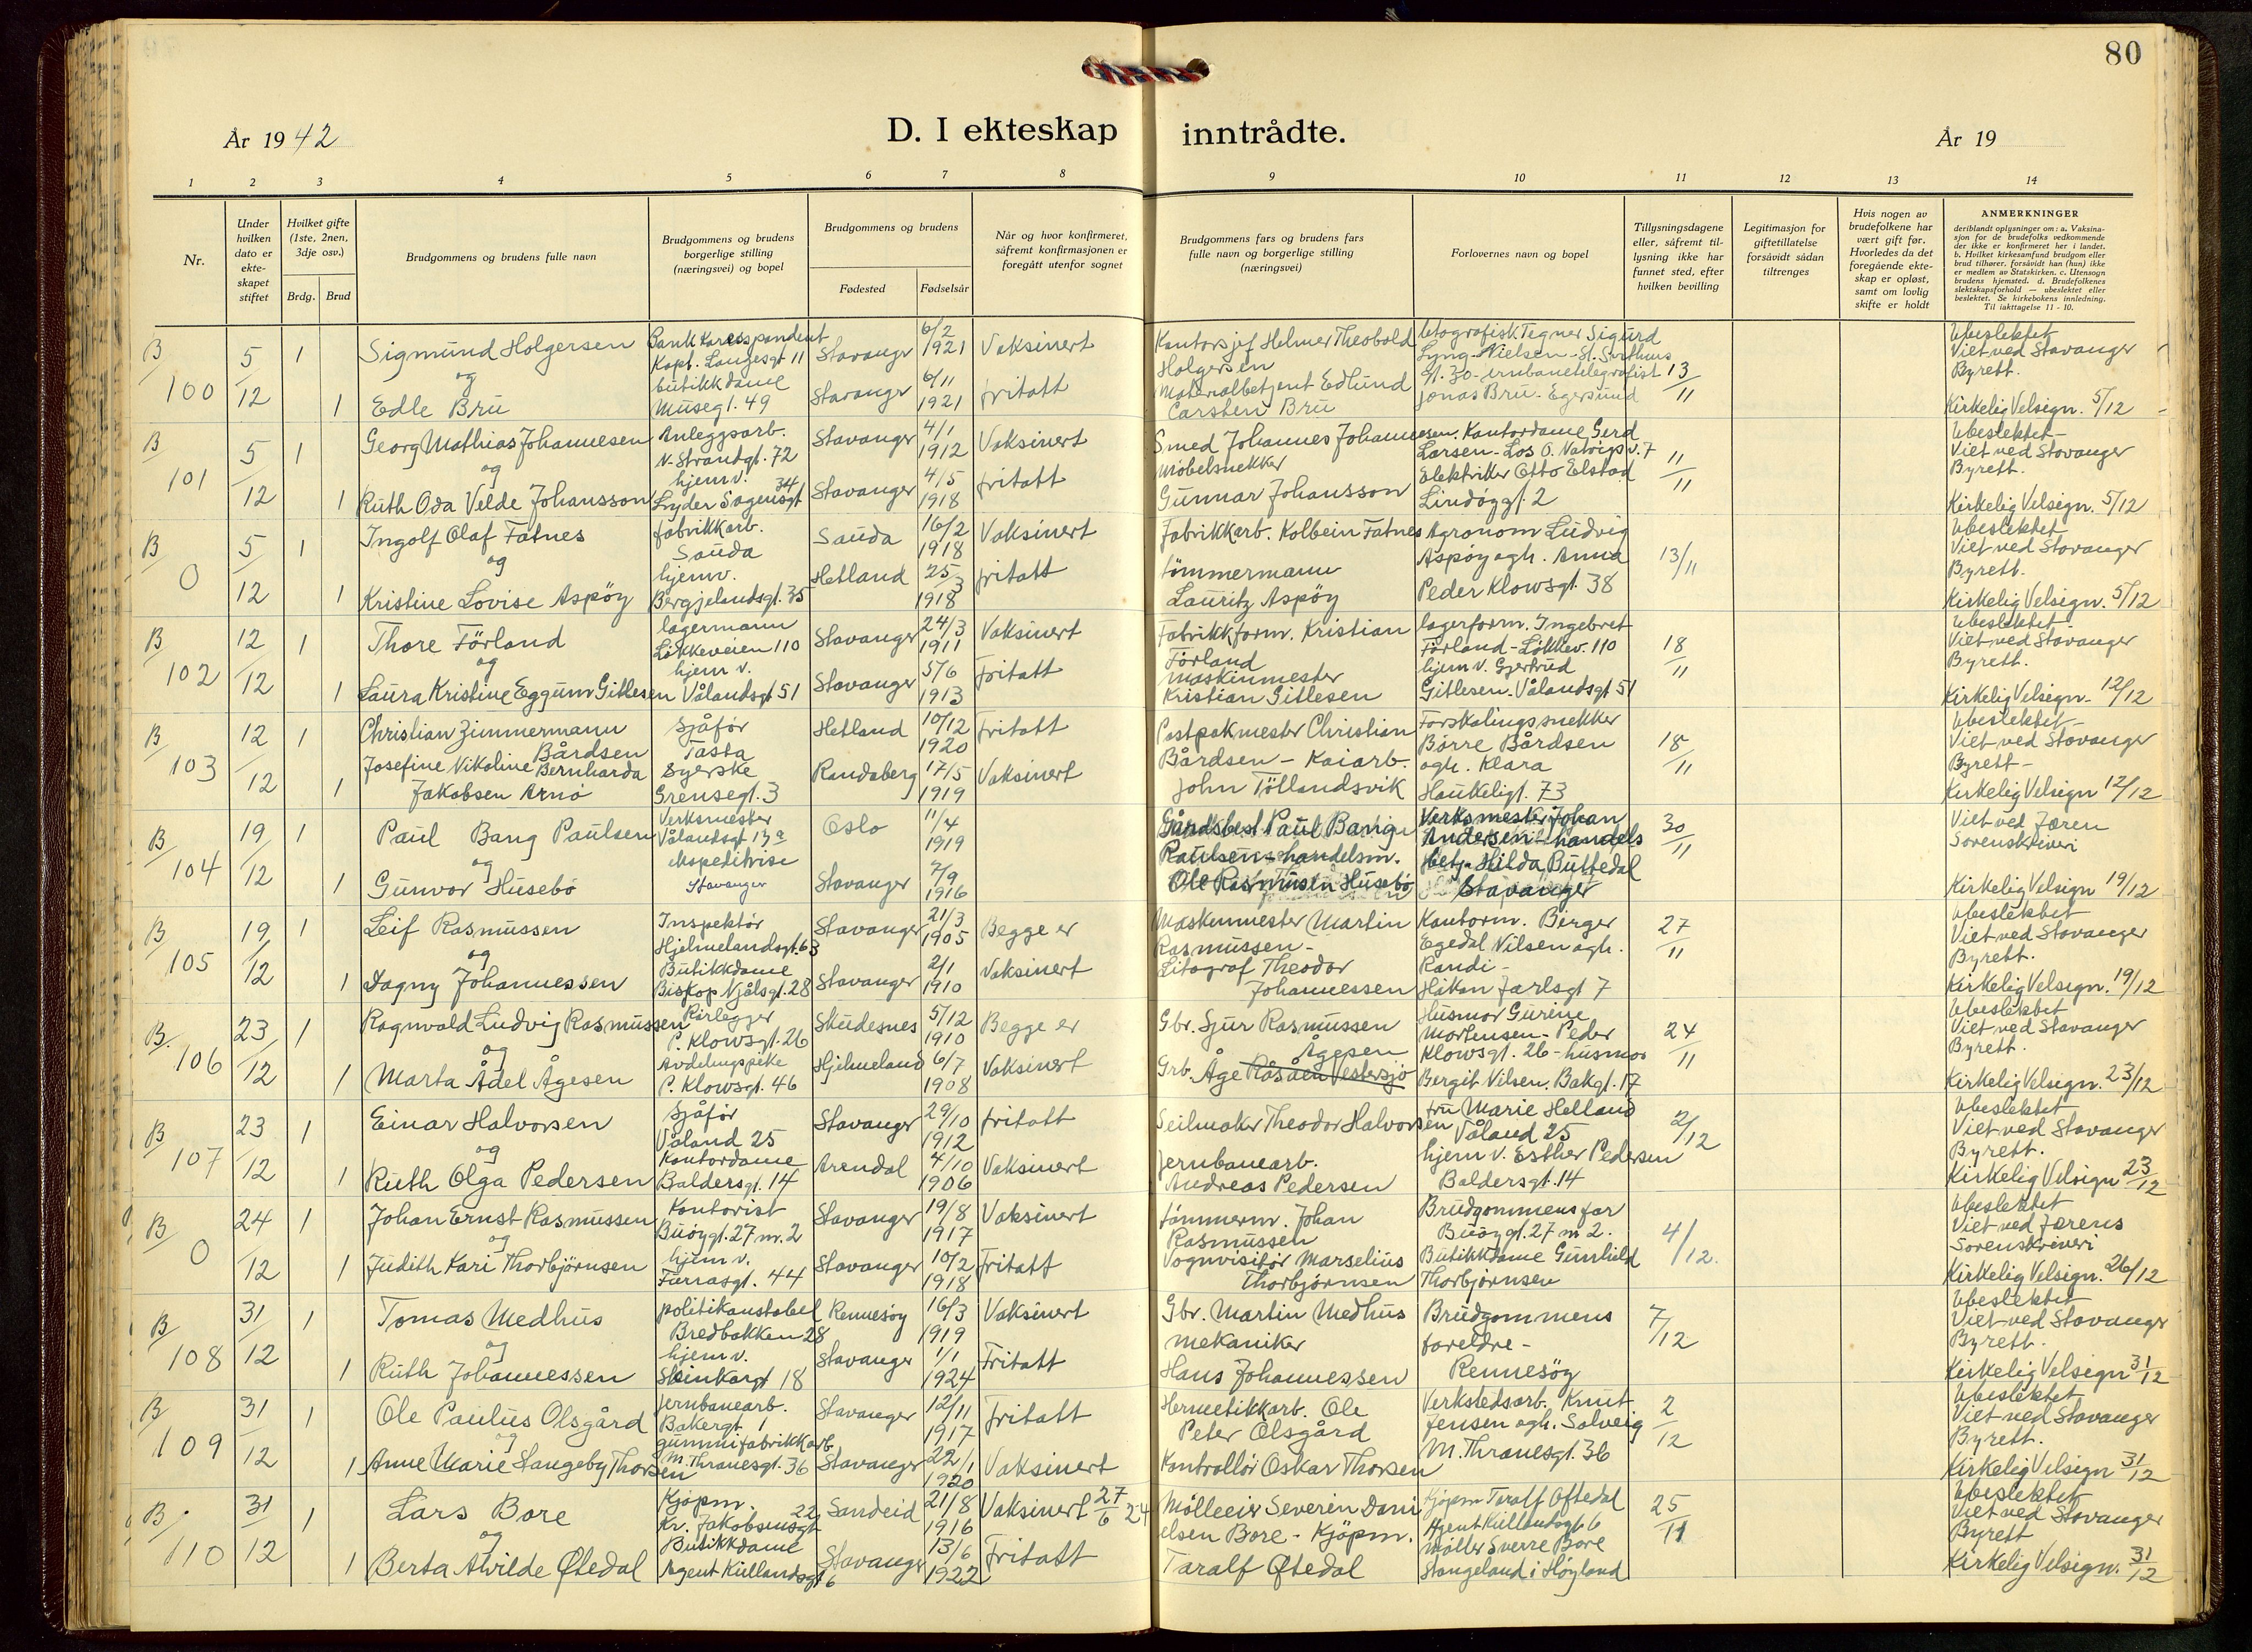 80
År 1942
D. I ekteskap inntrådte.
År 19
1 2 3 4 5 6 7 8 9 10 11 12 13 14
Nr.
Under hvilken dato er ekteskapet stiftet
Hvilket gifte (1ste, 2nen, 3dje osv.)
Brdg. Brud
Brudgommens og brudens fulle navn
Brudgommens og brudens borgerlige stilling (næringsvei) og bopel
Brudgommens og brudens
Fødested Fødselsår
Når og hvor konfirmeret, såfremt konfirmasjonen er foregått utenfor sognet
Brudgommens fars og brudens fars fulle navn og borgerlige stilling (næringsvei)
Forlovernes navn og bopel
Tillysningsdagene eller, såfremt tillysning ikke har funnet sted, efter hvilken bevilling
Legitimasjon for giftetillatelse forsåvidt sådan tiltrenges
Hvis nogen av brudefolkene har vært gift før. Hvorledes da det foregående ekteskap er opløst, samt om lovlig skifte er holdt
ANMERKNINGER
deriblandt oplysninger om: a. Vaksinasjon for de brudefolks vedkommende der ikke er konfirmeret her i landet. b. Hvilket kirkesamfund brudgom eller brud tilhører, forsåvidt han (hun) ikke er medlem av Statskirken. c. Utensogn brudens hjemsted. d. Brudefolkenes slektskapsforhold — ubeslektet eller beslektet. Se kirkebokens innledning. Til iakttagelse 11 - 10.
B 100
5/12 1
Sigmund Holgersen
og
1 Edle Bru
Bankkorrespondent
Kapt. Langesgt 11
butikkdame
Musegt. 49
Stavanger 6/2 1921 Vaksinert
Stavanger 6/11 1921 fritatt
Kontorsjef Helmer Theobold
Holgersen
Materialbetjent Edlund
Carsten Bru
Sigurd
Lyng-Nielsen
gt. 30 - jernbanetelegrafist
Jonas Bru - Egersund
13/11
Ubeslektet
Viet ved Stavanger
Byrett.
Kirkelig Velsign. 5/12
B 101
5/12 1
Georg Mathias Johannesen
og
1 Ruth Oda Velde Johansson
Anleggsarb.
N. Strandgt. 72
hjemv.
Lyder Sagensgt 34
Stavanger 4/1 1912 Vaksinert
Stavanger 4/5 1918 fritatt
Smed Johannes Johannesen.
Møbelsnekker
Gunnar Johansson
Kontordame Gerd
Larsen - Los O. Natvigs v. 7
Elektriker Otto Elstad
Lindøygt 2
11/11
Ubeslektet -
Viet ved Stavanger
Byrett.
Kirkelig Velsign. 5/12
B 0
5/12 1
Ingolf Olaf Fatnes
og
1 Kristine Lovise Aspöy
fabrikkarb.
Sauda
hjemv.
Bergjelandsgt. 35
Sauda 16/2 1918 Vaksinert
Hetland 25/3 1918 fritatt
Fabrikkarb. Kolbein Fatnes
tömmermann
Lauritz Aspöy
Agronom Ludvig
Aspøy ogh. Anna
Peder Klowsgt. 38
13/11
Ubeslektet -
Viet ved Stavanger
Byrett.
Kirkelig Velsign. 5/12
B 102
12/12 1
Thore Förland
og
1 Laura Kristine Eggum Gitlesen
lagermann
Løkkeveien 110
hjem v.
Vålandsgt 51
Stavanger 24/3 1911 Vaksinert
Stavanger 5/6 1913 Fritatt
Fabrikkform. Kristian
Förland
Maskinmester
Kristian Gitlesen
lagerform. Ingebret
Förland - Løkkev. 110
hjem v. Gjertrud
Gitlesen. Vålandsgt 51
18/11
Ubeslektet -
Viet ved Stavanger
Byrett.
Kirkelig Velsign. 12/12
B 103
12/12 1
Christian Zimmermann
Bårdsen
1 Josefine Nikoline Bernharda
Jakobsen Arnö
Sjåfør
Tasta
Syerske
Grensegt. 3
Hetland 10/12 1920 Fritatt
Randaberg 17/5 1919 Vaksinert
Postpakmester Christian
Bårdsen - Kaiarb.
John Töllandsvik
Forskalingssnekker
Børre Bårdsen
ogh. Klara
Haukeligt. 73
18/11
Ubeslektet -
Viet ved Stavanger
Byrett -
Kirkelig Velsign 12/12
B 104
19/12 1
Paul Bang Paulsen
og
1 Gunvor Husebö
Verksmester
Vålandsgt 13a
ekspeditrise
Stavanger
Oslo 11/4 1919
Stavanger 7/9 1916
Gårdsbest. Paul Bang
Paulsen - handelsm.
Ole Rasmusen Husebö
Verksmester Johan
Andersen - handels
betj. Hilda Buttedal
Stavanger
30/11
Viet ved Jæren
Sorenskriveri
Kirkelig Velsign 19/12
B 105
19/12 1
Leif Rasmussen
og
1 Dagny Johannessen
Inspektør
Hjelmelandsgt. 63
Butikkdame
Biskop Njålsgt. 28
Stavanger 21/3 1905 Begge er
Stavanger 2/1 1910 Vaksinert
Maskinmester Martin
Rasmussen -
Litograf Theodor
Johannessen
Kontorm. Birger
Egedal Nilsen ogh.
Randi -
Håkon Jarlsgt 7
27/11
Ubeslektet
Viet ved Stavanger
Byrett.
Kirkelig Velsign. 19/12
B. 106
23/12 1
Ragnvald Ludvig Rasmussen
og
1 Marta Ådel Ågesen
Rörlegger
P. Klowsgt. 26
Avdelingspike
P. Klowsgt. 46
Skudesnes 5/12 1910 Begge er
Hjelmeland 6/7 1908 Vaksinert
Gbr. Sjur Rasmussen
Ågesen
Grb. Åge Råsåen Vestersjø
Husmor Gurine
Mortensen - Peder
Klowsgt. 26 - husmor
Bergit Nilsen. Bakgt. 17
24/11
Ubeslektet
Viet ved Stavanger
Byrett.
Kirkelig Velsign. 23/12
B 107
23/12 1
Einar Halvorsen
og
1 Ruth Olga Pedersen
Sjåför
Våland 25
Kontordame
Baldersgt. 14
Stavanger 29/10 1912 fritatt
Arendal 4/10 1906 Vaksinert
Seilmaker Theodor Halvorsen
Jernbanearb.
Andreas Pedersen
fru Marie Helland
Våland 25
hjem v. Esther Pedersen
Baldersgt. 14
2/12
Ubeslektet
Viet ved Stavanger
Byrett.
Kirkelig Velsign 23/12
B 0
24/12 1
Johan Ernst Rasmussen
og
1 Judith Kari Thorbjörnsen
Kontorist
Buöygt. 27 m. 2
hjem v.
Furrasgt. 44
Stavanger 19/8 1917 Vaksinert
Stavanger 10/2 1918 Fritatt
tömmerm. Johan
Rasmussen
Vognvisitör Marselius
Thorbjörnsen
Brudgommens far
Buöygt. 27 m 2.
Butikkdame Gunhild
Thorbjørnsen
4/12.
Ubeslektet
Viet ved Jærens
Sorenskriveri
Kirkelig Velsign. 26/12
B 108
31/12 1
Tomas Medhus
og
1 Ruth Johannessen
politikonstabel
Bredbakken 28
hjem v.
Steinkargt 18
Rennesøy 16/3 1919 Vaksinert
Stavanger 1/1 1924 Fritatt
Gbr. Martin Medhus
mekaniker
Hans Johannessen
Brudgommens
foreldre -
Rennesøy
7/12
Ubeslektet
Viet ved Stavanger
Byrett.
Kirkelig Velsign 31/12
B 109
31/12 1
Ole Paulus Olsgård
og
1 Anne Marie Stangeby Thorsen
Jernbanearb.
Bakergt. 1
gummifabrikkarb.
M. Thranesgt. 36
Stavanger 12/11 1917 fritatt
Stavanger 22/1 1920 Vaksinert
Hermetikkarb. Ole
Peter Olsgård
Kontrollör Oskar Thorsen
Verkstedsarb. Knut
Jensen ogh. Solveig
M. Thranesgt. 36
2/12
Ubeslektet
Viet ved Stavanger
Byrett.
Kirkelig Velsign 31/12
B. 110
31/12 1
Lars Bore
og
1 Berta Alvilde Øftedal
Kjøpm.
Kr. Jakobsensgt 22
Butikkdame
Agent Kiellandsgt 6
Sandeid 21/8 1916 Vaksinert 27/6 24
Stavanger 13/6 1922 Fritatt
Mölleeier Severin Dani
elsen Bore - Kjöpm.
Taralf Øftedal
Kjøpm Taralf Oftedal
Agent Kiellandsgt 6
Møller Sverre Bore
Stangeland i Høyland
25/11
Ubeslektet
Viet ved Stavanger
Byrett
Kirkelig Velsign. 31/12